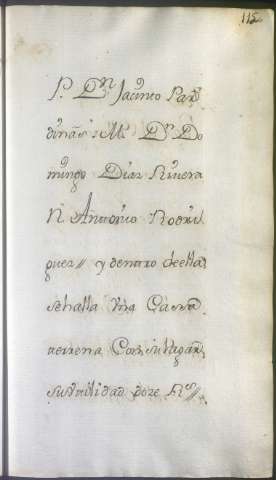 115
P. Dn. Jacinto Par
dinas: M. Dn. Do
mingo Diaz Rivera
N. Antonio Rodri
guez // y dentro de ella
se halla Una Casa
terrena Con su lagar
su utilidad doze rs //.